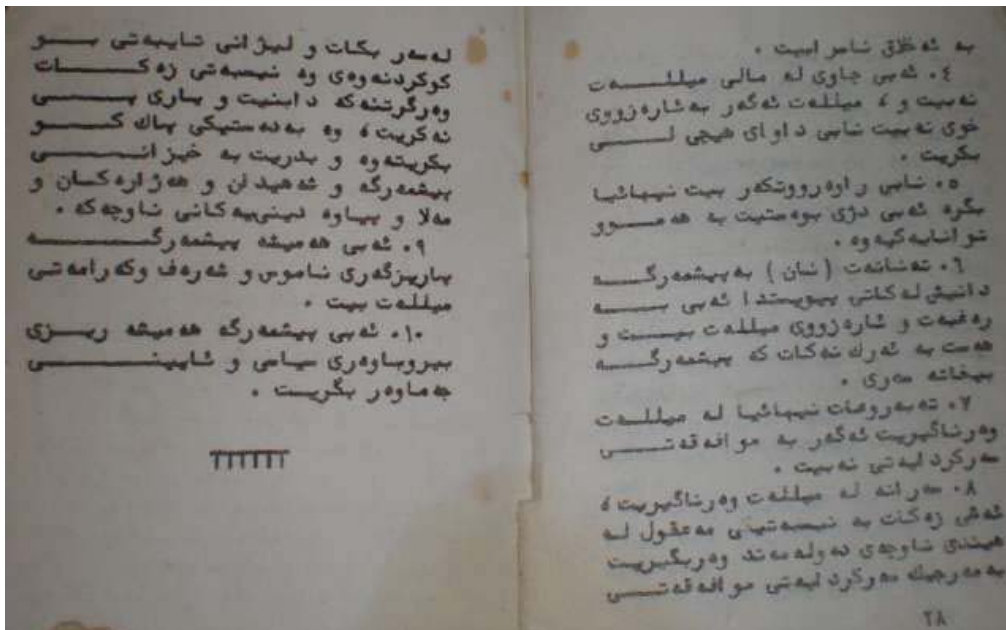 به ئهخلاق ناسرابیت .
٤. ئهبی چاوی له مالی میللـــهت
نهبیت و ، میللهت ئهگهر بهئارهزووی
خوی نهبیت نابی داوای هیچی لـــی
بکریت .
٥. نابی راوهرووتکهر بیت نیهائیا
بگره ئهبی دژی بوهستیت به ههمـــوو
توانایهکیهوه .
٦. تهنانهت ( نان ) بهپیشمهرگـــه
دانیش لهکاتی پیویستدا ئهبی بـــه
رهغبهت و ئارهزووی میللهت بیـــت و
ههست به ئهرك نهکات که پیشمهرگـــه
بیخاته سهری .
٧. تهبهروعات نیهائیا له میللـــهت
وهرناگیریت ئهگهر به موافهقهتـــی
سهرکردایهتی نهبیت .
٨. سهرانه له میللهت وهرناگیریت ،
ئهی زهکات به نیسبهتیی مهعقول لـه
هیندی ناوچهی دهولهمهند وهربگیریت
بهمهرجیك سهرکردایهتی موافهقهتـــی
٢٨
لهسهر بکات و لیژانی تایبهتی بـــو
کوکردنهوهی وه نیسبهتی زهکـــات
وهرگرتنهکه دابنیت و یاری پـــی
نهکریت ، وه بهدهستیکی پاك کـــو
بکریتهوه و بدریت به خیزانـــی
پیشمهرگه و شههیدان و ههژارهکــان و
مهلا و پیاوه دینییهکانی ناوچهکه .
٩. ئهبی ههمیشه پیشمهرگـــه
پاریزگهری ناموس و شهرهف وکهرامهتـی
میللهت بیت .
١٠. ئهبی پیشمهرگه ههمیشه ریـــزی
بیروباوهری سیاسی و ئایینـــی
جهماوهر بگریــت .